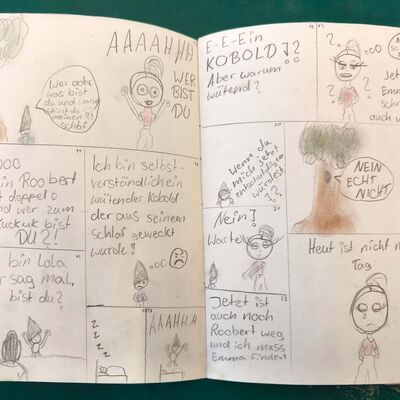 Wer oder
was bist
du und
meinen
schlaf
AAAAHHH
WER
BIST
DU
Roobert
doppel
und wer zum
Kuckuk bist
DU?!
Ich bin selbst-
verständlich ein
wütender Kobold
der aus seinem
Schlaf geweckt
wurde!
bin Lola
sag mal,
bist du?
ZZZ
AAAHHA
E-E-Ein
KOBOLD!?
Aber warum
wütend?
???
Jet
Emma
schon
auch w
Wenn du
mich jetzt
entschuldigen
würdest
NEIN
ECHT
NICHT
Nein!
Warte!
Heut ist nicht m
Tag
Jetzt ist
auch noch
Roobert weg
und ich muss
Emma finden